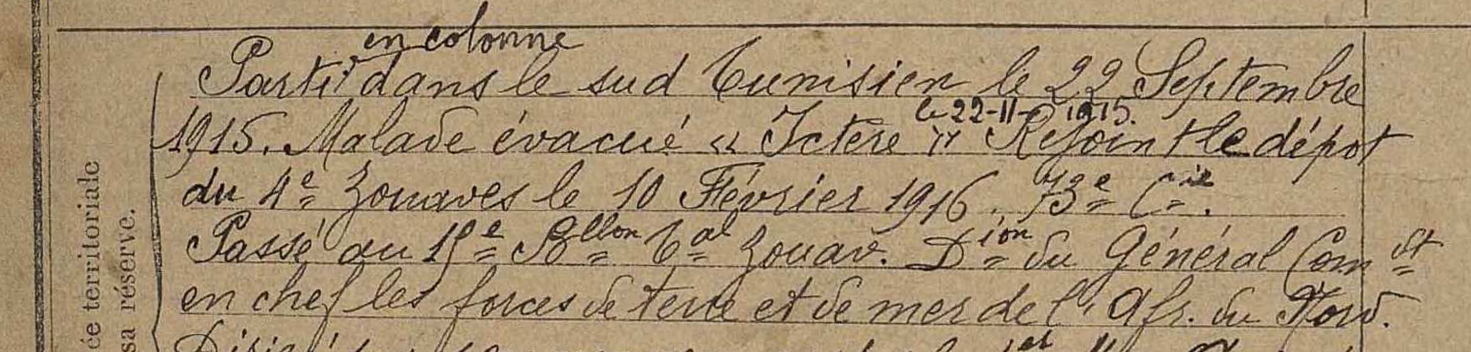 en colonne
Parti dans le sud Tunisien le 22 Septembre
le 22-11-1915.
1915. Malade évacué « Ictère » Rejoint le dépot
du 4e Zouaves le 10 Février 1916. 73e Cie.
Passé au 15e Bllon Tal Zouav. Dion du Général Comdt
en chef les forces de terre et de mer de l'Afr. du Nord.
ée territoriale
sa réserve.